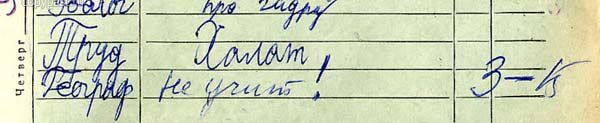 про гидру
Четверг
Труд Халат
Географ не учит! 3 –